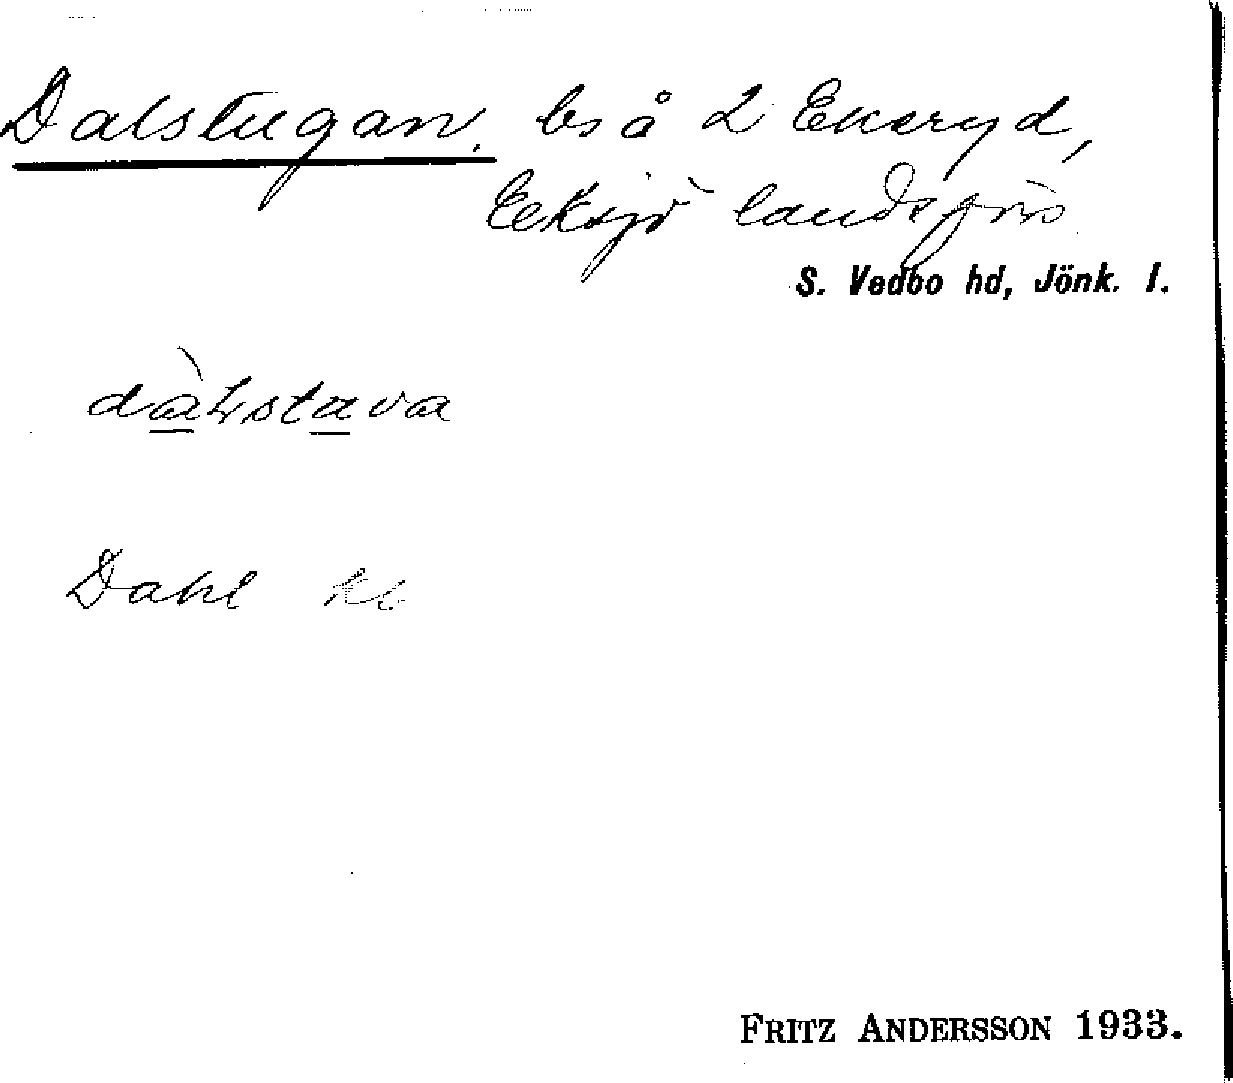 Dalstugan. bs å 2 Ekeryd,
Eksjö landsförs.
S. Vedbo hd, Jönk. l.
dàlstava
Dahl kb
FRITZ ANDERSSON 1933.